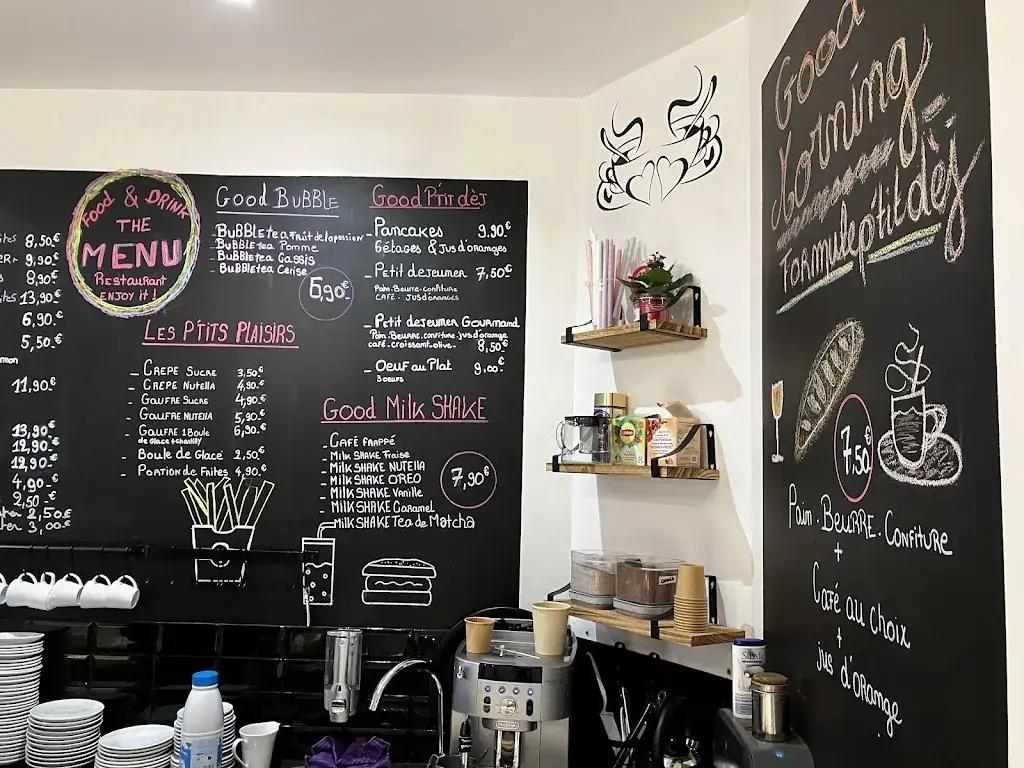 8,50.€
9,90.€
8,90.€
13,90€
6,90.€
5,50.€
11,90.€
13,90€
12,90€
12,90.€
4,90.€
2,50.€
2,50€
3,00€
FOOD & DRINK
THE
MENU
Restaurant
ENJOY it !
GOOD BUBBLE
- BUBBLE tea Fruit de la passion
- BUBBLE tea Pomme
- BUBBLE tea Cassis
- BUBBLE tea Cerise
6,90.€
LES P'TITS PLAISIRS
- CREPE SUCRE 3,50.€
- CREPE NUTELLA 4,90.€
- GAUFRE SUCRE 4,90.€
- GAUFRE NUTELLA 5,90.€
- GAUFRE 1 Boule 6,90.€
de glace + chantilly
- BOULE de GLACE 2,50€
- PORTION de FRITES 4,90.€
GOOD P'TIT dèJ
- PANCAKES 9,90.€
6 étages & jus d'oranges
- Petit dejeuner 7,50€
Pain-Beurre-confiture
CAFE - JUS d'ORANGES
- Petit dejeuner GOURMAND
Pain.Beurre.confiture.jus d'orange
café.croissant.olive. 8,50€
- OEUF au PLAT 9,00€
3 oeufs
GOOD MILK SHAKE
- CAFÉ FRAPPÉ
- Milk SHAKE Fraise
- Milk SHAKE NUTELLA
- Milk SHAKE OREO
- Milk SHAKE Vanille
- Milk SHAKE Caramel
- Milk SHAKE Tea de Matcha
7,90€
Good
Morning
Formule p'tit dèj
7,50
Pain . BEURRE . Confiture
+
Café au choix
+
jus d'ORANGE